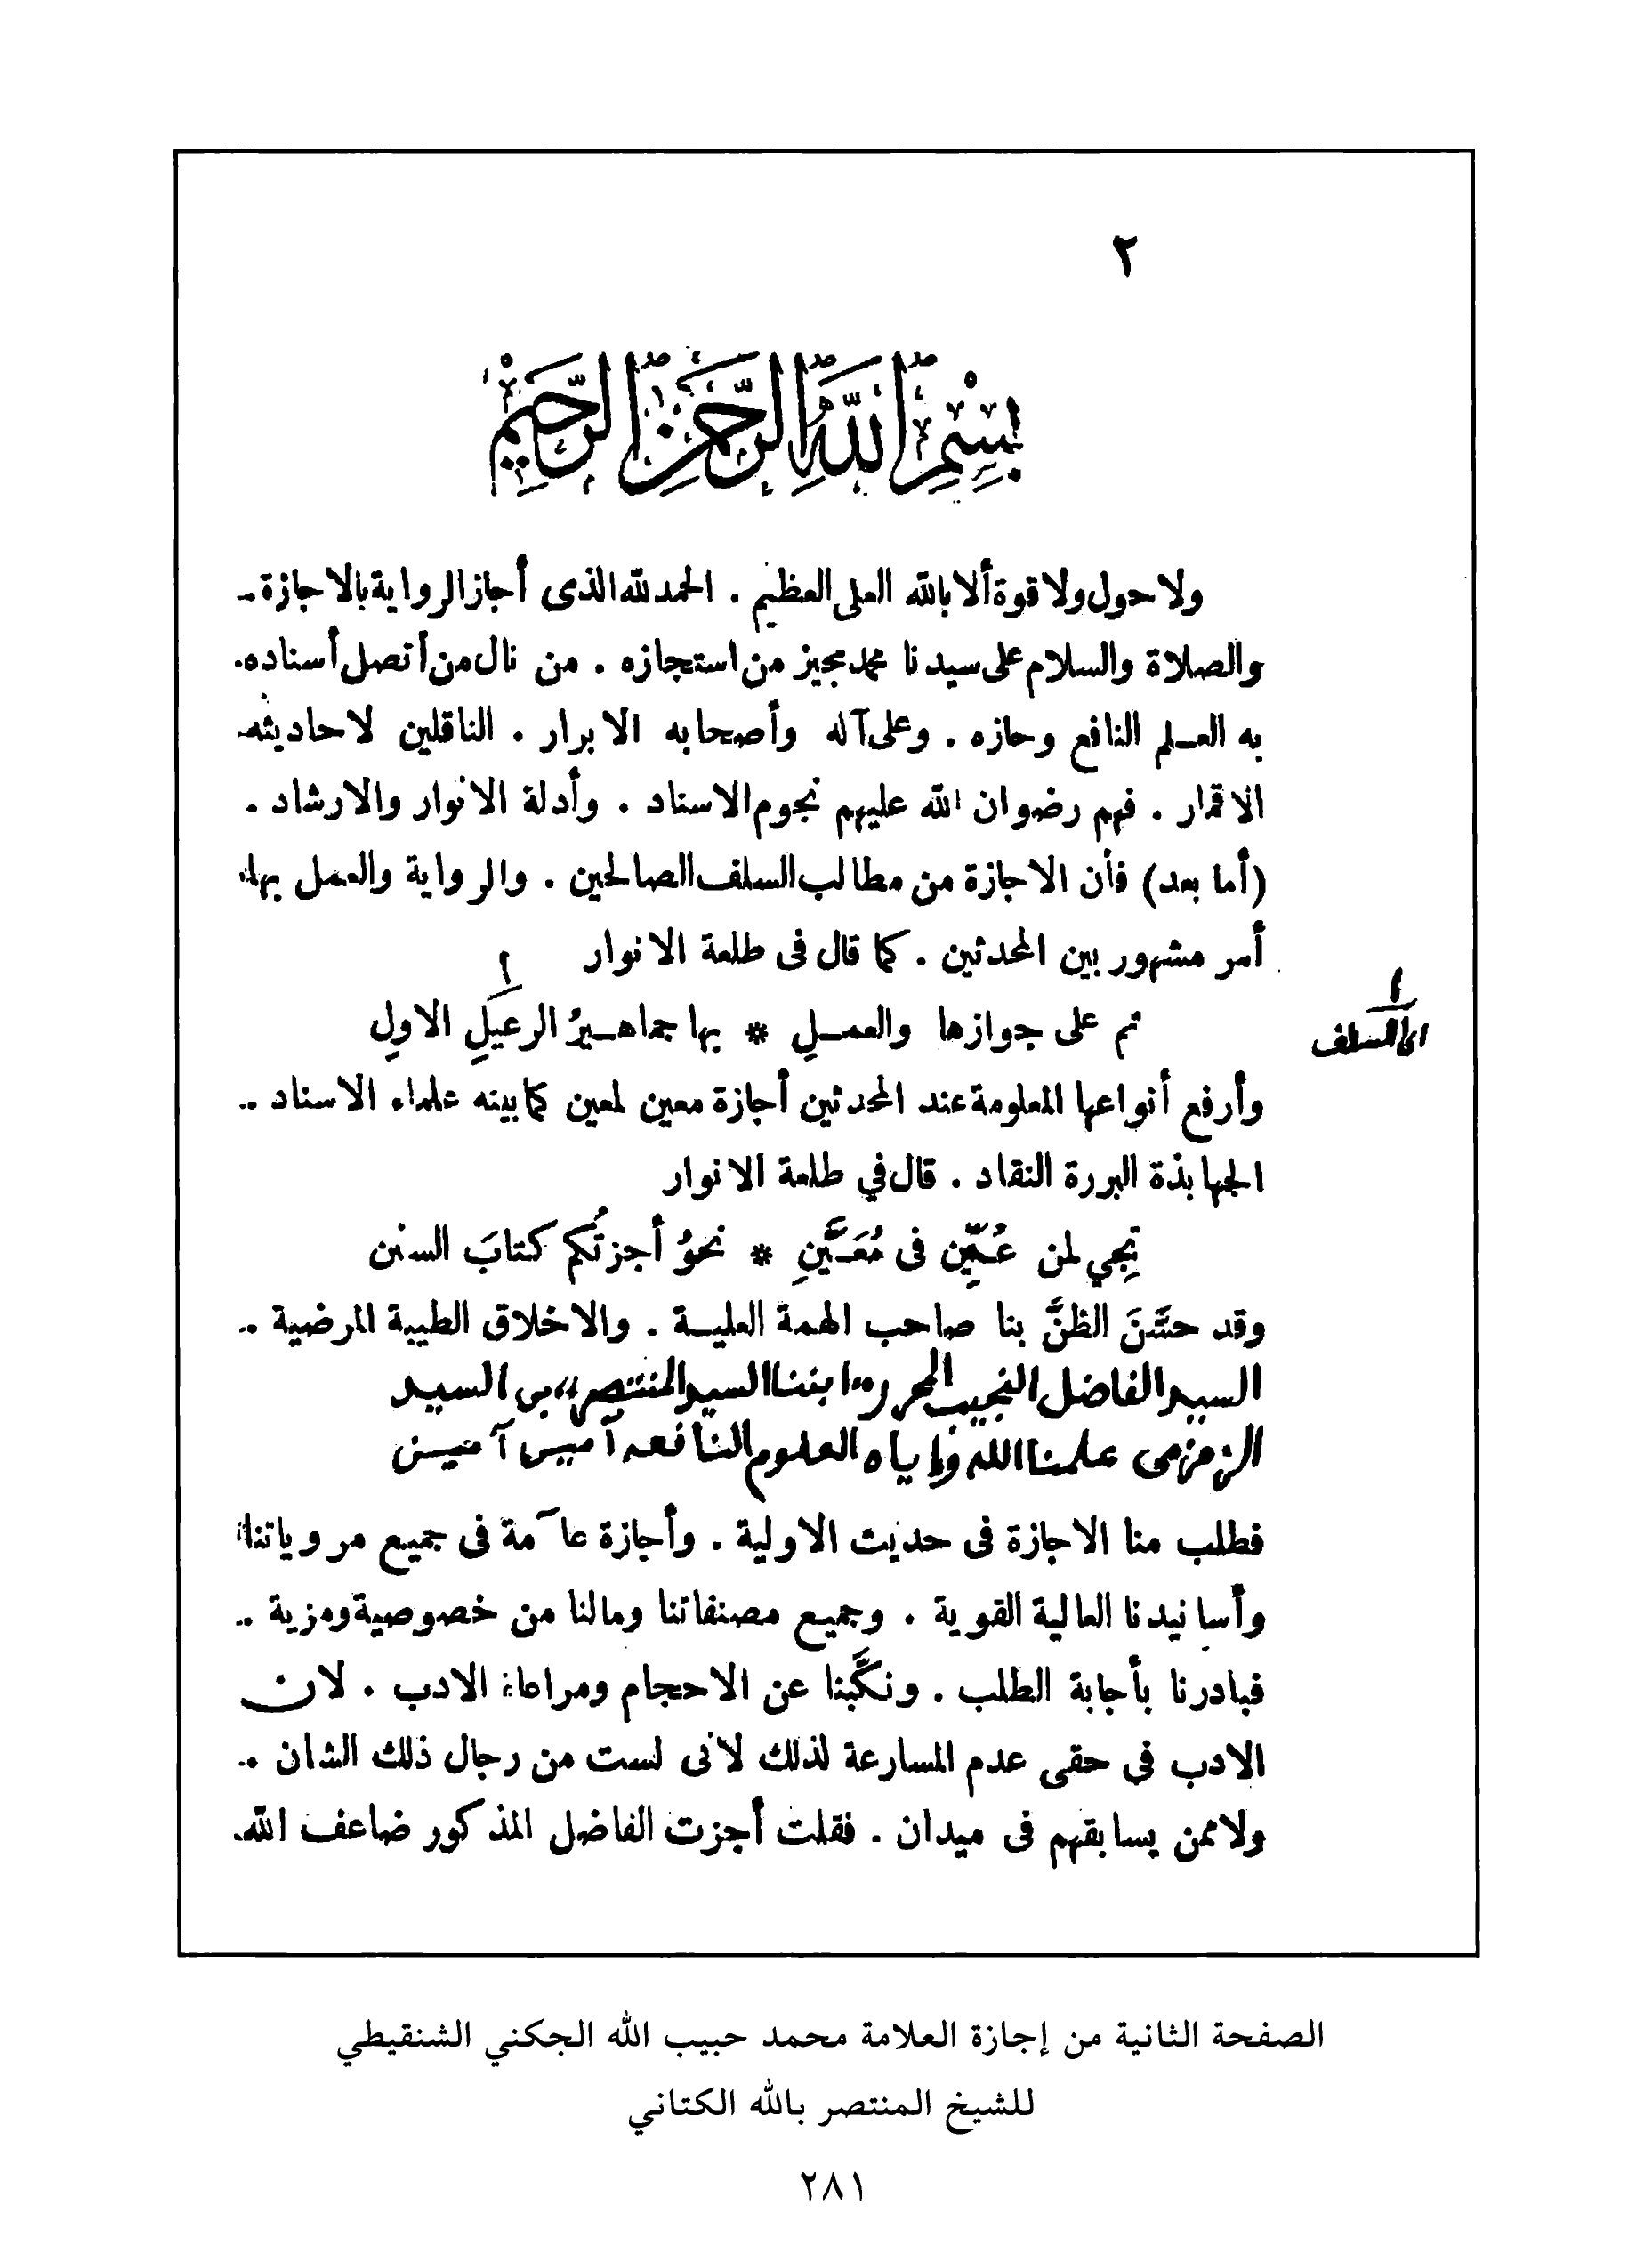 ٢
بِسْمِ اللَّهِ الرَّحْمَنِ الرَّحِيمِ
ولا حول ولا قوة ألا بالله العلى العظيم . الحمد لله الذى أجاز الرواية بالاجازة .
والصلاة والسلام على سيدنا محمد مجيز من استجازه . من نال من أتصل أسناده .
به العلم النافع وحازه . وعلى آله وأصحابه الابرار . الناقلين لاحاديثه
الاقمار . فهم رضوان الله عليهم نجوم الاسناد . وأدلة الانوار والارشاد .
(أما بعد) فأن الاجازة من مطالب السلف الصالحين . والرواية والعمل بها
أمر مشهور بين المحدثين . كما قال فى طلعة الانوار
ثم على جوازها والعمـلِ * بها جماهـيرُ الرعيلِ الاولِ
١
١
اى السلف
وأرفع أنواعها المعلومة عند المحدثين أجازة معين لمعين كما بينه علماء الاسناد ..
الجهابذة البررة النقاد . قال في طلعة الانوار
تجِي لمن عُـيِّن فى مُعَـيَّنِ * نحوُ أجزتُكم كتابَ السنن
وقد حسَّنَ الظنَّ بنا صاحب الهمة العليـة . والاخلاق الطيبة المرضية ..
السيد الفاضل النجيب المحرر ،، ابننا السيد المنتصر ،، بن السيد
الزمزمى علمنا الله وإياه العلوم النافعة آمين آمين
فطلب منا الاجازة فى حديث الاولية . وأجازة عآمة فى جميع مروياتنا
وأسانيدنا العالية القوية . وجميع مصنفاتنا ومالنا من خصوصية ومزية ..
فبادرنا بأجابة الطلب . ونكَّبنا عن الاحجام ومراعاة الادب . لان
الادب فى حقى عدم المسارعة لذلك لانى لست من رجال ذلك الشان ..
ولا ممن يسابقهم فى ميدان . فقلت أجزت الفاضل المذكور ضاعف الله
الصفحة الثانية من إجازة العلامة محمد حبيب الله الجكني الشنقيطي
للشيخ المنتصر بالله الكتاني
٢٨١